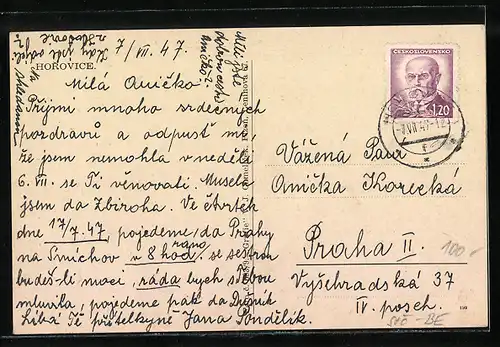 HOŘOVICE.
7/VII. 47.
Milá Aničko
Přijmi mnoho srdečných
pozdravů a odpusť mě,
že jsem nemohla v neděli
6. VII. se Ti věnovati. Musela
jsem do Zbiroha. Ve čtvrtek
dne 17/7.47 pojedeme do Prahy
na Smíchov v 8 hod. ráno se sestrou
budeš-li moci, ráda bych s Tebou
mluvila, pojedeme pak do
Líbá Tě přítelkyně Jana Pondělík.
ČESKOSLOVENSKO
1,20
-7.VII.47-12
Vážená Paní
Anička Korecká
Praha II.
Vyšehradská 37
IV. posch.
100.-
BE